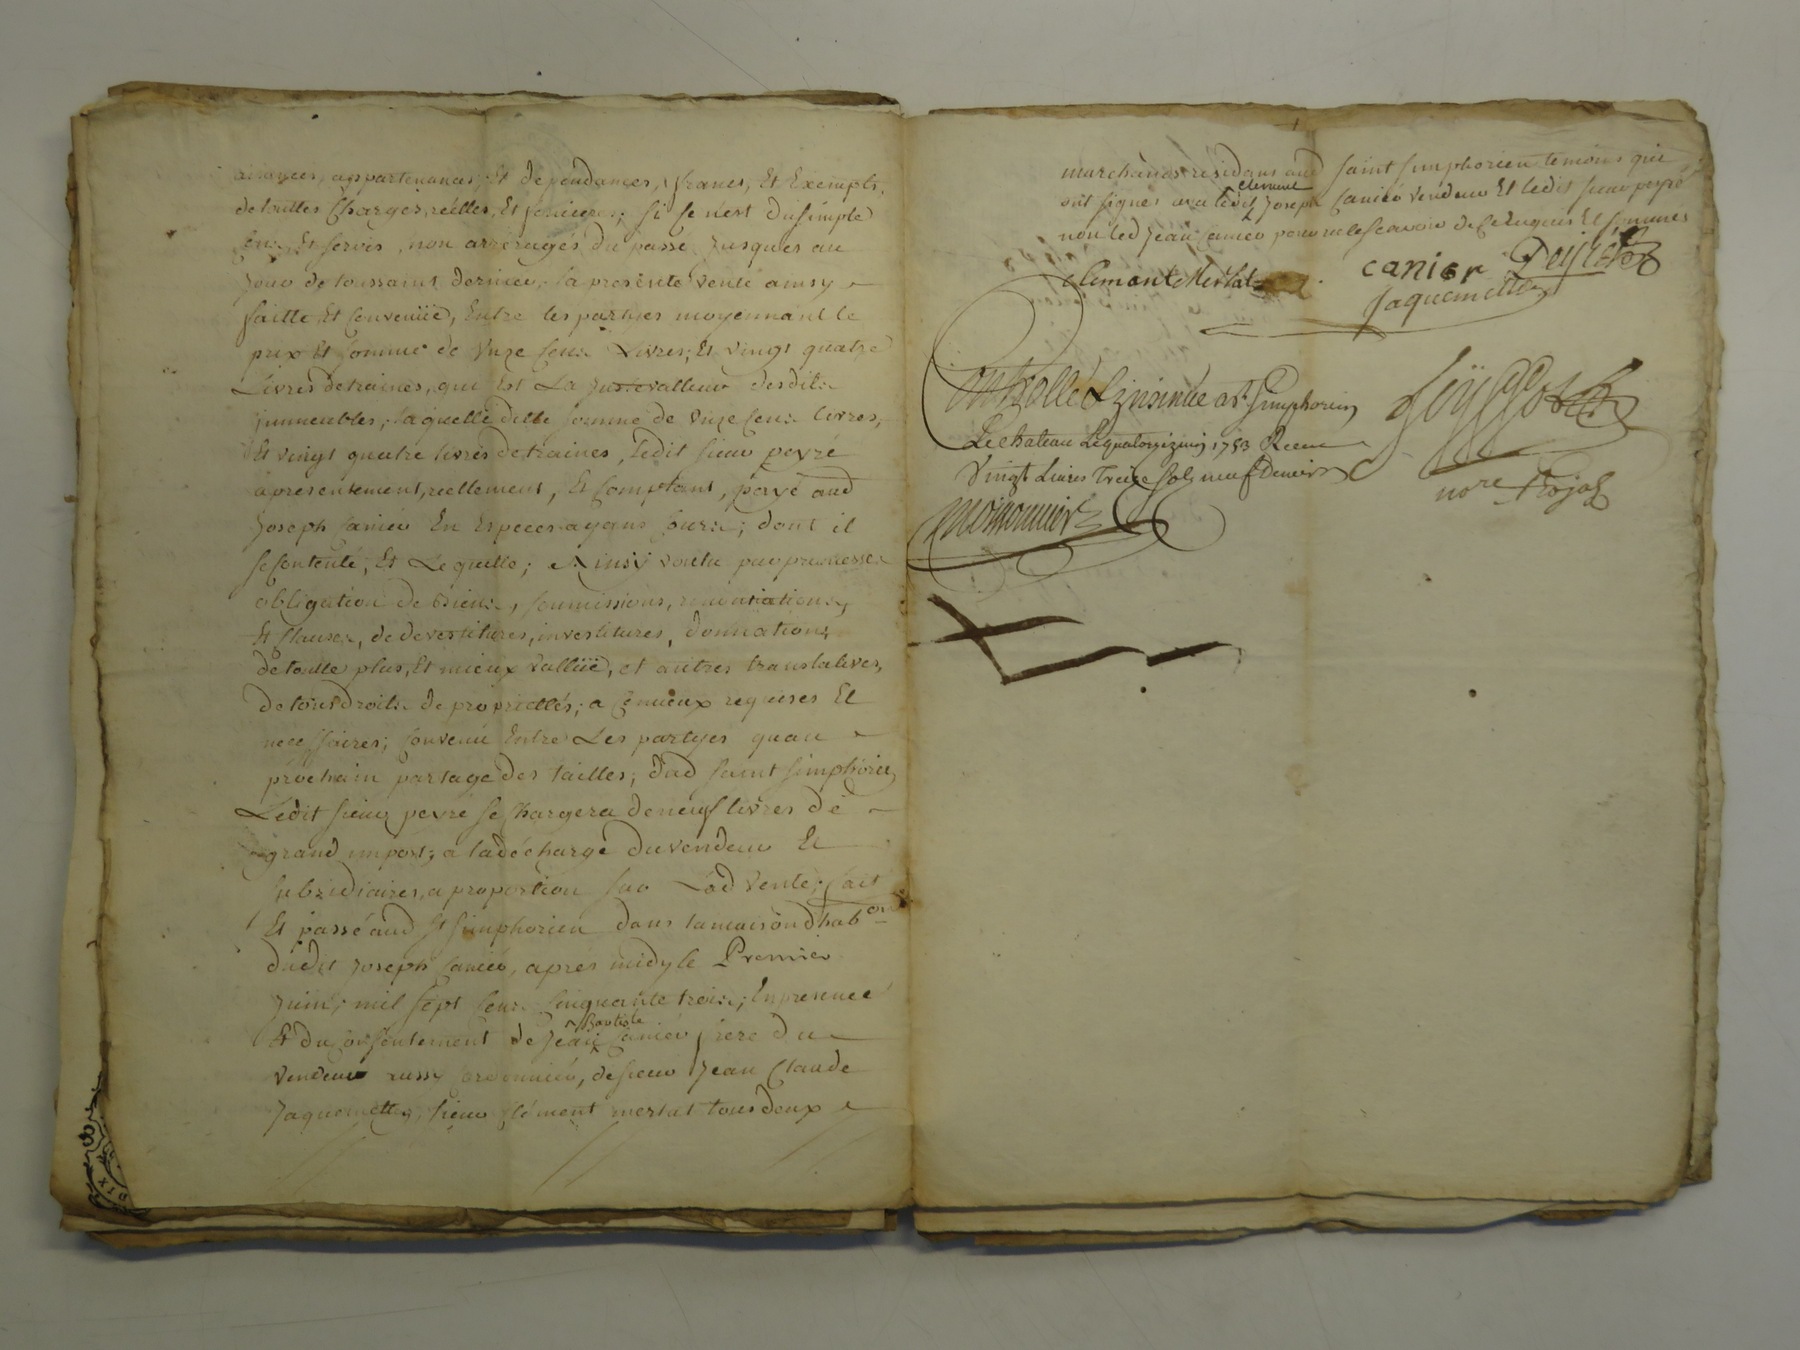 aisances, appartenances, Et dependances, francs, Et Exempts,
de touttes Charges, réélles, Et foncieres; si ce n'est du simple
Cens Et servis, non arréragés du passé Jusques au
Jour de toussaint dernier, la presente vente ainsy
faitte Et Convenüe, Entre les parties moyennant le
prix Et somme de Unze Cens Livres; Et vingt quatre
Livres détraines, qui Est La Juste valleur desdits
immeubles; laquelle ditte somme de Unze Cens livres,
Et vingt quatre livres détraines, Ledit sieur peyré
a presentement, réellement, Et Comptant, payé aud
Joseph Canier En Especes ayans Cours; dont il
se Contente, Et Le quitte; Ainsy voulu par promesses
obligation de Biens, soumissions, renontiations,
Et Clauses, de devestitures, investitures, donnations
de toutte plus, Et mieux vallüe, et autres translatives,
De tous droits de propriettés; a Ce mieux requises Et
necessaires; Convenu Entre Les partyes quau
prochain partage des tailles; dud saint simphorien
Ledit sieur peyré se Chargera de neuf livres de
grand impost; a la décharge du vendeur Et
subzidiaires, a proportion sur Lad vente; fait
Et passé aud St simphorien dans la maison dhab.on
dudit Joseph Canier, apres midy le Premier
Juin; mil sept Cens Cinquante trois; En presence
Et du Consentement de Jean Baptiste Canier frere du
vendeur aussy Cordonnier, de sieur Jean Claude
Jaquemette, sieur Clément merlat tous deux
marchands residans aud saint simphorien temoins qui
ont signés avec ledit Joseph clement Canier vendeur Et ledit sieur peyré
non led Jean Canier pour ne le scavoir de Ce Enquis Et sommés
Clement Merlat
canier Peijré
Jaquemette
Controllé & insinué a St. Simphorien
Le chateau Le quatorze juin 1753 Receu
Vingt Livres Treize sols neuf Deniers
nore Royal